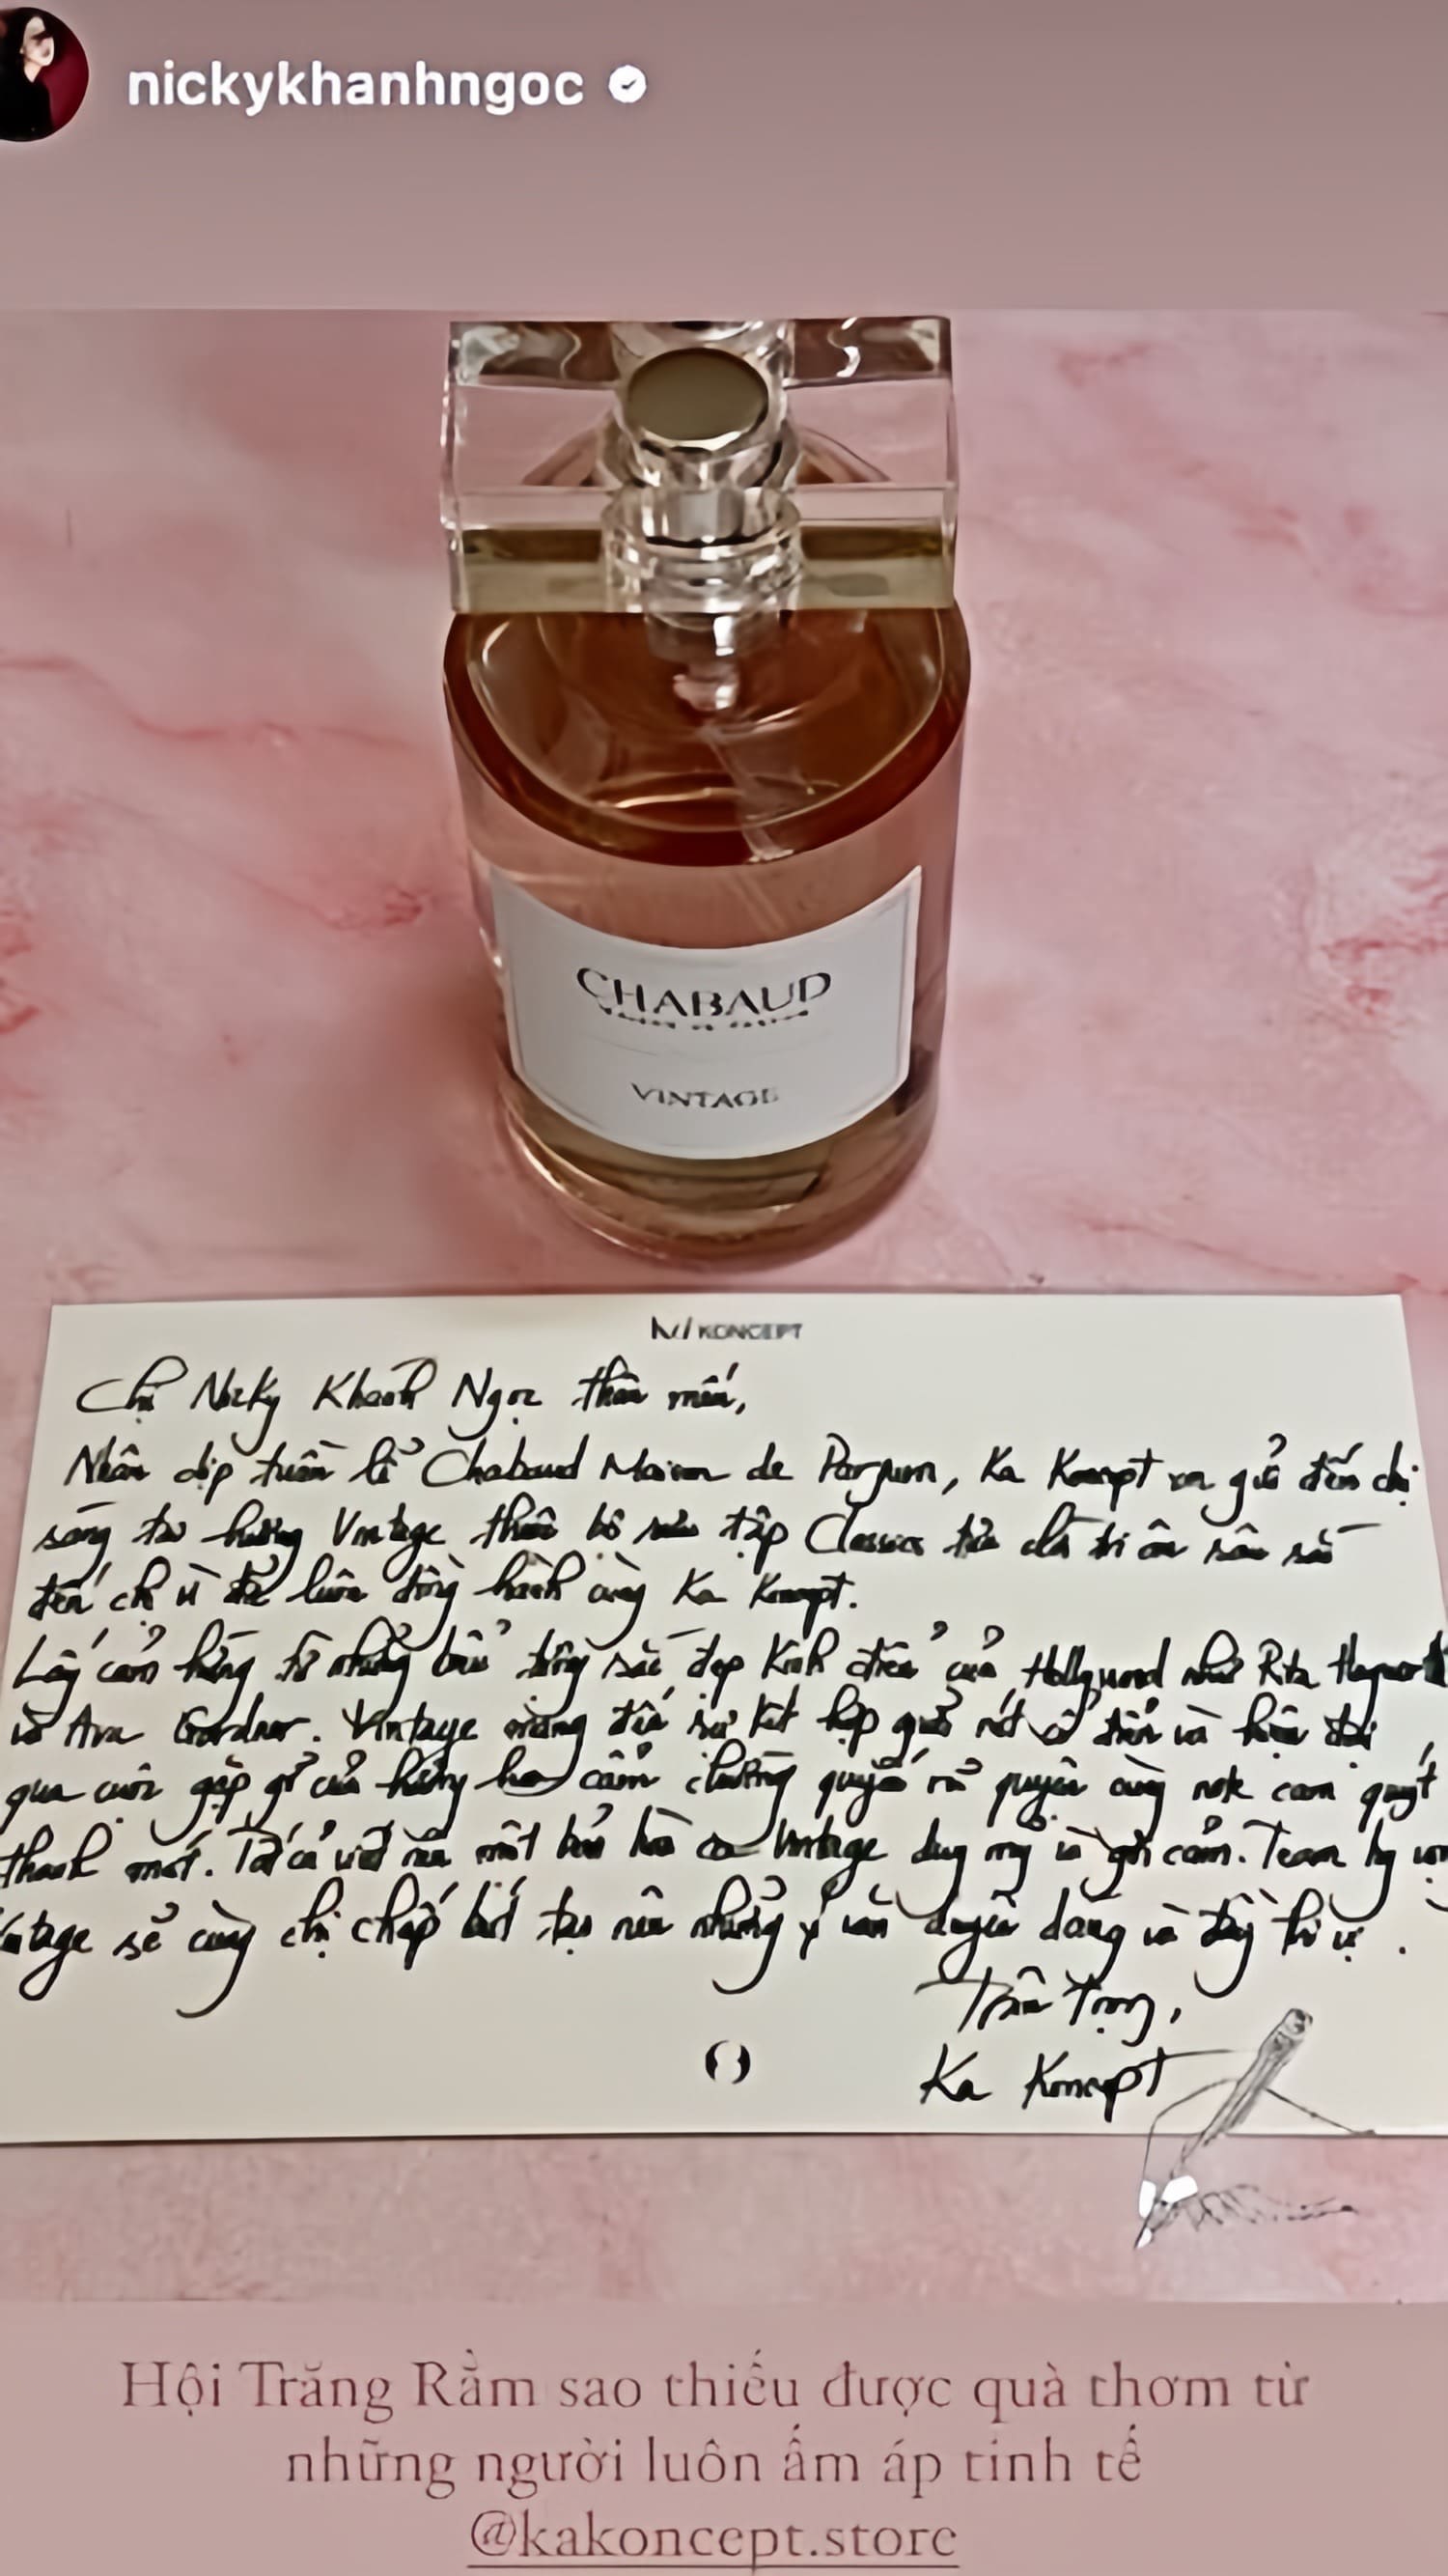 nickykhanhngoc
CHABAUD
VINTAGE
KONCEPT
Chị Nicky Khánh Ngọc thân mến,
Nhân dịp tuần lễ Chabaud Maison de Parfum, Ka Koncept xin gửi đến chị
sáng tạo hương Vintage thuộc bộ sưu tập Classics tri ân sâu sắc
đến chị vì đã luôn đồng hành cùng Ka Koncept.
Lấy cảm hứng từ những biểu tượng sắc đẹp kinh điển của Hollywood như Rita Hayworth
và Ava Gardner. Vintage mang đến sự kết hợp giữa nét cổ điển và hiện đại
qua cuộc gặp gỡ của hương hoa cẩm chướng quyến rũ quyện cùng note cam quýt
thanh mát. Tất cả viết nên một bản tình ca Vintage duy mỹ và gợi cảm. Team hy vọng
Vintage sẽ cùng chị chấp bút tạo nên những ý văn duyên dáng và đầy thi vị.
Trân Trọng,
Ka Koncept
Hội Trăng Rằm sao thiếu được quà thơm từ
những người luôn ấm áp tinh tế
@kakoncept.store